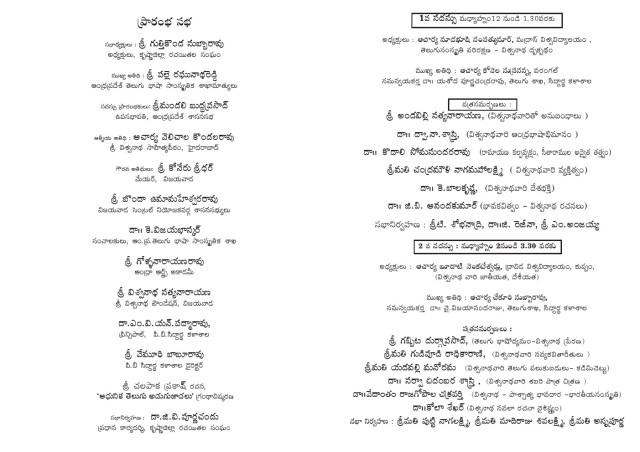 ప్రారంభ సభ
సభాధ్యక్షులు : శ్రీ గుత్తికొండ సుబ్బారావు
అధ్యక్షులు, కృష్ణాజిల్లా రచయితల సంఘం
ముఖ్య అతిథి : శ్రీ పల్లె రఘునాథరెడ్డి
ఆంధ్రప్రదేశ్ తెలుగు భాషా సాంస్కృతిక శాఖామాత్యులు
సదస్సు ప్రారంభకులు: శ్రీమండలి బుద్ధప్రసాద్
ఉపసభాపతి, ఆంధ్రప్రదేశ్ శాసనసభ
ఆత్మీయ అతిథి : ఆచార్య వెలిచాల కొండలరావు
శ్రీ విశ్వనాథ సాహిత్యపీఠం, హైదరాబాద్
గౌరవ అతిథులు: శ్రీ కోనేరు శ్రీధర్
మేయర్, విజయవాడ
శ్రీ బొండా ఉమామహేశ్వరరావు
విజయవాడ సెంట్రల్ నియోజకవర్గ శాసనసభ్యులు
డా॥ కె.విజయభాస్కర్
సంచాలకులు, ఆం.ప్ర.తెలుగు భాషా సాంస్కృతిక శాఖ
శ్రీ గోళ్ళనారాయణరావు
ఆంధ్రా ఆర్ట్స్ అకాడమీ
శ్రీ విశ్వనాథ సత్యనారాయణ
శ్రీ విశ్వనాథ ఫౌండేషన్, విజయవాడ
డా.ఎం.వి.యన్.పద్మారావు,
ప్రిన్సిపాల్, పి.బి.సిద్ధార్థ కళాశాల
శ్రీ వేమూరి బాబూరావు
పి.బి సిద్ధార్థ కళాశాల డైరెక్టర్
శ్రీ చలపాక ప్రకాష్ రచన,
'ఆధునిక తెలుగు అచ్చుగూడాలు' గ్రంథావిష్కరణ
సభానిర్వహణ : డా.జి.వి.పూర్ణచందు
ప్రధాన కార్యదర్శి, కృష్ణాజిల్లా రచయితల సంఘం
1వ సదస్సు మధ్యాహ్నం12 నుండి 1.30వరకు
అధ్యక్షులు : ఆచార్య మాడభూషి సంపత్కుమార్, మద్రాస్ విశ్వవిద్యాలయం,
తెలుగుసంస్కృతి పరిరక్షణ - విశ్వనాథ దృక్పథం
ముఖ్య అతిథి : ఆచార్య కోవెల సుప్రసన్న, వరంగల్
సమన్వయకర్త డా॥ యశోద పూర్ణచంద్రరావు, తెలుగు శాఖ, సిద్ధార్థ కళాశాల
పత్రసమర్పణలు :
శ్రీ అండవిల్లి సత్యనారాయణ, (విశ్వనాథవారితో అనుబంధాలు )
డా॥ ద్వా.నా.శాస్త్రి, (విశ్వనాథవారి ఆంధ్రభాషాభిమానం )
డా॥ కొడాలి సోమసుందరరావు (రామాయణ కల్పవృక్షం, సీతారాముల అద్వైత తత్త్వం)
శ్రీమతి చంద్రమౌళి నాగమహాలక్ష్మి ( విశ్వనాథవారి వ్యక్తిత్వం)
డా॥ కె.బాలకృష్ణ, (విశ్వనాథవారి దేశభక్తి)
డా॥ జి.బి. ఆనందకుమార్ (భావకవిత్వం - విశ్వనాథ రచనలు)
సభానిర్వహణ : శ్రీ.టి. శోభనాద్రి, డా॥జి. రెజీనా, శ్రీ ఎం.అంజయ్య
2 వ సదస్సు : మధ్యాహ్నం 2నుండి 3.30 వరకు
అధ్యక్షులు : ఆచార్య పులికొండ, ద్రావిడ విశ్వవిద్యాలయం, కుప్పం,
(విశ్వనాథ వారి జాతీయత, దేశీయత)
ముఖ్య అతిథి : ఆచార్య చేకూరి సుబ్బారావు,
సమన్వయకర్త డా॥ వై.విజయానందరాజు, తెలుగుశాఖ, సిద్ధార్థ కళాశాల
పత్రసమర్పణలు :
శ్రీ గబ్బిట దుర్గాప్రసాద్, (తెలుగు భాషోద్యమం-విశ్వనాథ ప్రేరణ)
శ్రీమతి గుడిపూడి రాధికారాణి, (విశ్వనాథవారి నవ్యకవితారీతులు )
శ్రీమతి యడవల్లి మనోరమ (విశ్వనాథవారి తెలుగు పలుకుబడులు- కడిమిచెట్టు)
డా॥ సర్వా చిదంబర శాస్త్రి , (విశ్వనాథవారి శబరి పాత్ర చిత్రణ )
డా॥వేదాంతం రాజగోపాల చక్రవర్తి (విశ్వనాథ - పాశ్చాత్య భావదాడి -భారతీయసంస్కృతి)
డా॥కోలా శేఖర్ (విశ్వనాథ నవలా రచనా వైశిష్ట్యం)
సభా నిర్వహణ : శ్రీమతి పుట్టి నాగలక్ష్మి, శ్రీమతి మాదిరాజు శివలక్ష్మి, శ్రీమతి అన్నపూర్ణ